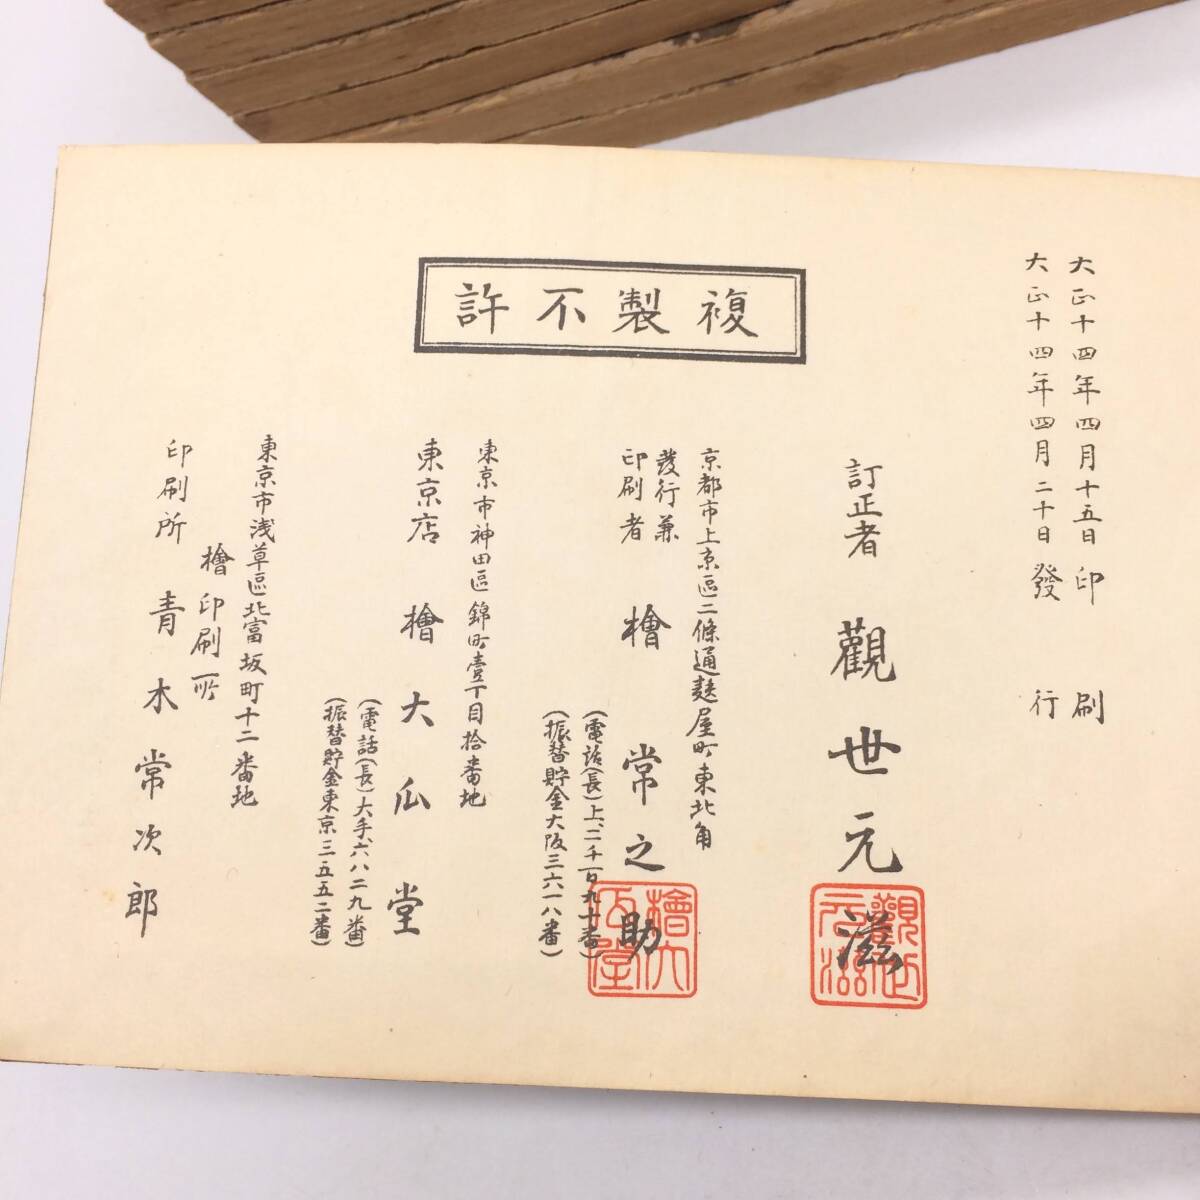 大正十四年四月十五日印刷
大正十四年四月二十日發行
複製不許
訂正者 觀世元滋
京都市上京區二條通麩屋町東北角
發行兼
印刷者 檜常之助
(電話(長)上、二千百九十番)
(振替貯金大阪三六一八番)
東京市神田區錦町壹丁目拾番地
東京店 檜大瓜堂
(電話(長)大手、六八二九番)
(振替貯金東京三五五二番)
東京市浅草區北富坂町十二番地
檜印刷所
印刷所 青木常次郎
觀世元滋
檜大瓜堂